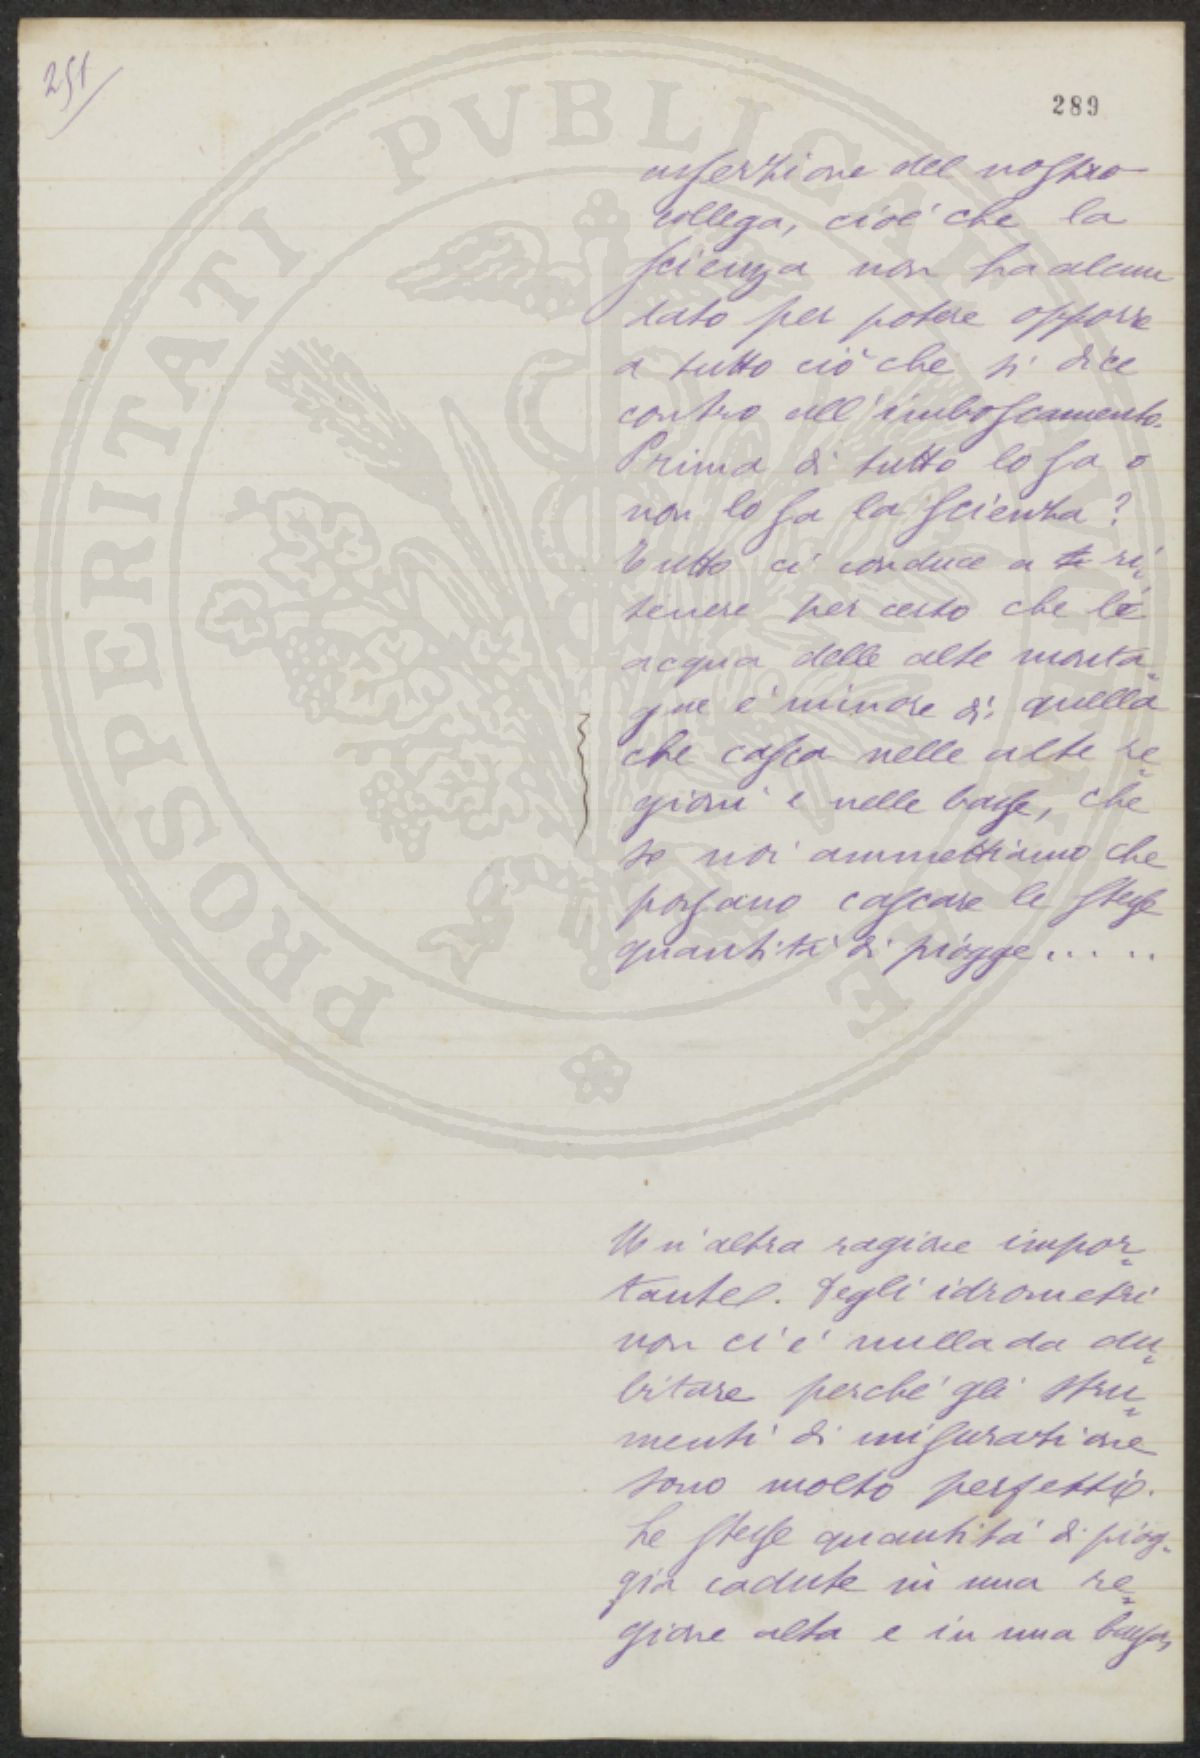 251
289
asserzione del nostro
collega, cioè che la
scienza non ha alcun
dato per potere opporre
a tutto ciò che si dice
contro all'imboscamento.
Prima di tutto lo sa o
non lo sa la scienza?
Tutto ci conduce a ri„
tenere per certo che l'
acqua delle alte monta„
gne è minore di quella
che casca nelle alte re„
gioni e nelle basse, che
se noi ammettiamo che
possano cascare le stesse
quantità di piogge.....
Un'altra ragione impor„
tante. Degli idrometri
non ci è nulla da du„
bitare perché gli stru„
menti di misurazione
sono molto perfetti.
Le stesse quantità di piog„
gia cadute in una re„
gione alta e in una bassa,
PROSPERITATI PVBLICAE